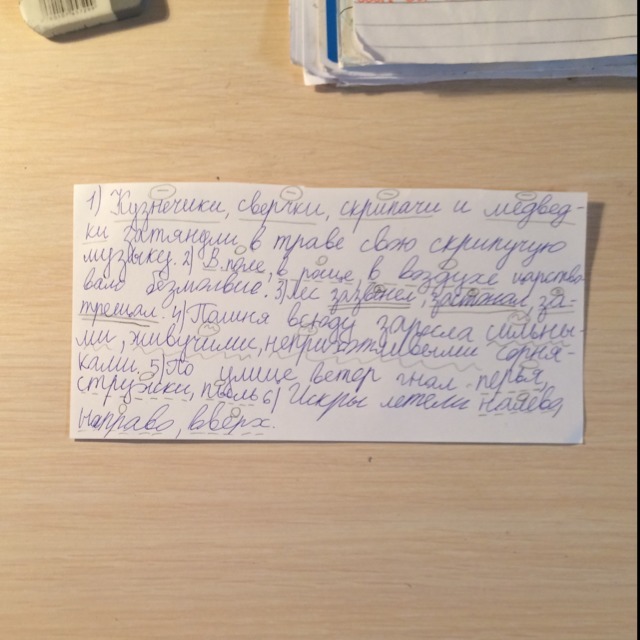 1) Кузнечики, сверчки, скрипачи и медвед-
ки затянули в траве свою скрипучую
музыку. 2) В поле, в роще, в воздухе царство-
вало безмолвие. 3) Лес зазвенел, застонал, за-
трещал. 4) Поляна всюду заросла сильны-
ми, живучими, неприхотливыми сорня-
ками. 5) По улице ветер гнал перья,
стружки, пыль 6) Искры летели налево,
направо, вверх.